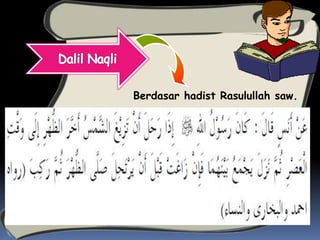 Dalil Naqli
Berdasar hadist Rasulullah saw.
عَنْ أَنَسٍ قَالَ : كَانَ رَسُوْلُ اللهِ ﷺ إِذَا رَحَلَ أَنْ تَزِيْغَ الشَّمْسُ أَخَّرَ الظُّهْرَ إِلَى وَقْتِ
الْعَصْرِ ثُمَّ نَزَلَ يَجْمَعُ بَيْنَهُمَا فَإِنْ زَاغَتْ قَبْلَ أَنْ يَرْتَحِلَ صَلَّى الظُّهْرَ ثُمَّ رَكِبَ (رواه
احمد والبخارى والنساء)